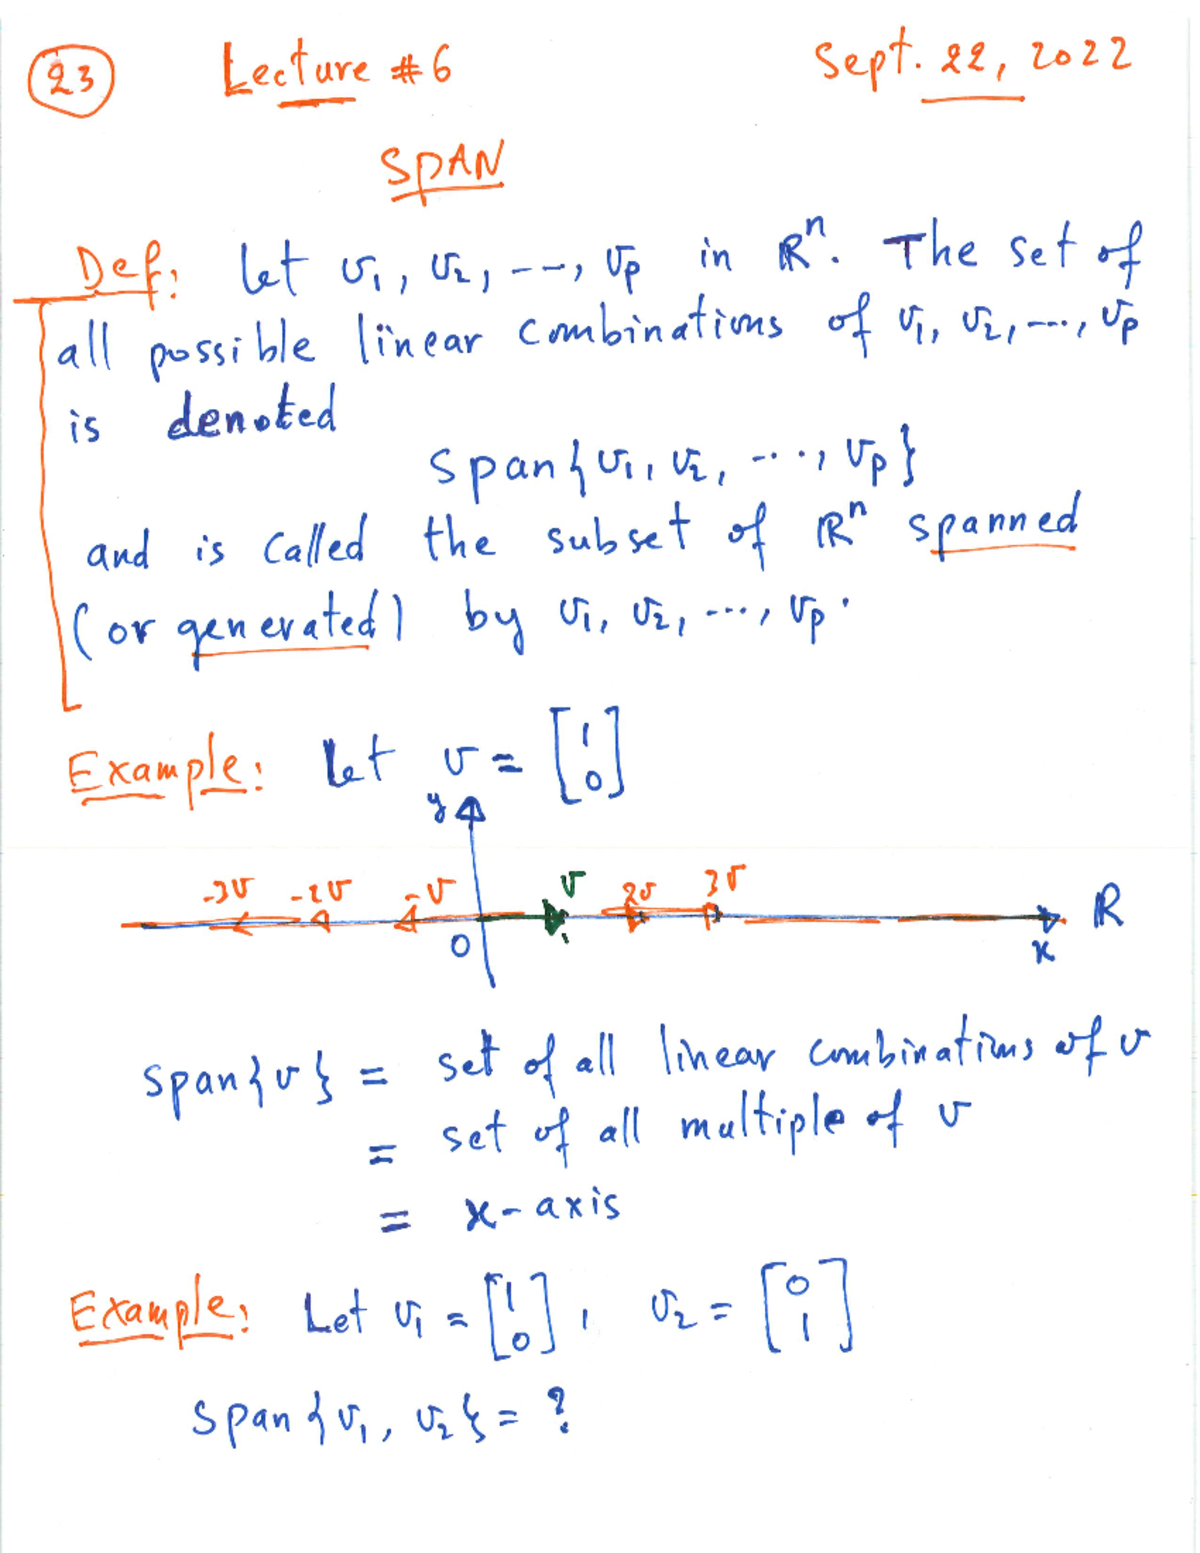 23 Lecture #6 Sept. 22, 2022
SPAN
Def: Let v₁, v₂, ---, vₚ in ℝⁿ. The set of
all possible linear combinations of v₁, v₂, ---, vₚ
is denoted
span{v₁, v₂, ..., vₚ}
and is called the subset of ℝⁿ spanned
(or generated) by v₁, v₂, ..., vₚ.
Example: Let v = [1 0]
y
-3v -2v -v v 2v 3v ℝ
0 1 x
span{v} = set of all linear combinations of v
= set of all multiple of v
= x-axis
Example: Let v₁ = [1 0], v₂ = [0 1]
span{v₁, v₂} = ?